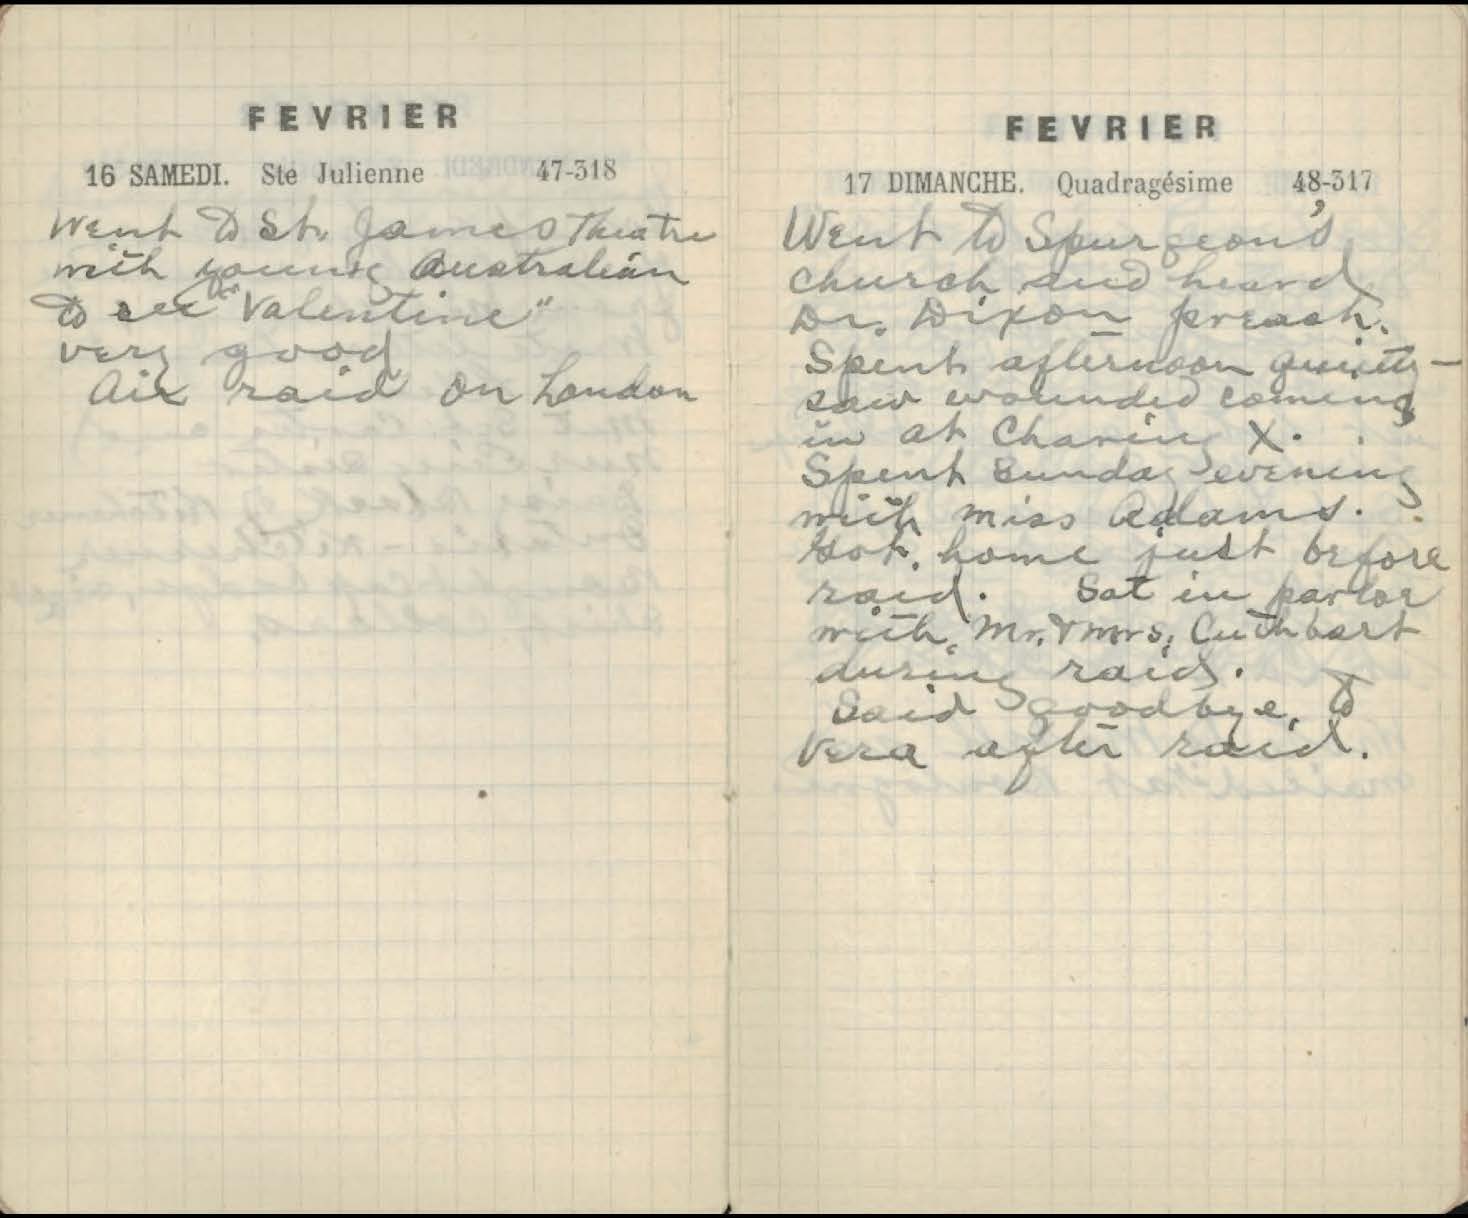 FEVRIER
16 SAMEDI. Ste Julienne 47-318
Went to St. James Theatre
with young Australian
to see "Valentine"
very good
Air raid on London
FEVRIER
17 DIMANCHE. Quadragésime 48-317
Went to Spurgeon's
church and heard
Dr. Dixon preach.
Spent afternoon quietly -
saw wounded coming
in at Charing X.
Spent Sunday evening
with Miss Adams.
Got home just before
raid. Sat in parlor
with Mr. & Mrs. Cuthbart
during raid.
Said goodbye to
Vera after raid.